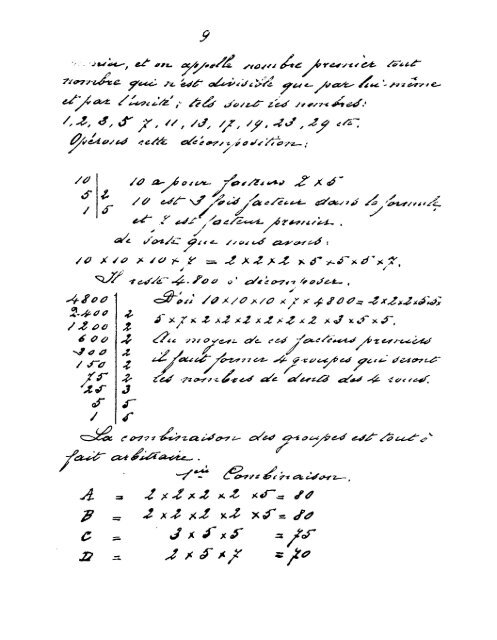 9
et on appelle nombre premier tout
nombre qui n'est divisible que par lui-même
et par l'unité; tels sont les nombres:
1, 2, 3, 5 7, 11, 13, 17, 19, 23, 29 etc.
Opérons cette décomposition:
10 | 10 a pour facteurs 2 x 5
5 | 2 10 est 3 fois facteur dans la formule,
1 | 5 et 7 est facteur premier.
de sorte que nous avons:
10 x 10 x 10 x 7 = 2 x 2 x 2 x 5 x 5 x 5 x 7.
Il reste 4.800 à décomposer.
4800 | D'où 10 x 10 x 10 x 7 x 4800 = 2x2x2x5x5x
2400 | 2
1200 | 2 5 x 7 x 2 x 2 x 2 x 2 x 2 x 2 x 3 x 5 x 5.
600 | 2 Au moyen de ces facteurs premiers
300 | 2 il faut former 4 groupes qui seront
150 | 2
75 | 2 les nombres de dents des 4 roues.
25 | 3
5 | 5
1 | 5
La combinaison des groupes est tout à
fait arbitraire.
1ère Combinaison.
A = 2 x 2 x 2 x 2 x 5 = 80
B = 2 x 2 x 2 x 2 x 5 = 80
C = 3 x 5 x 5 = 75
D = 2 x 5 x 7 = 70